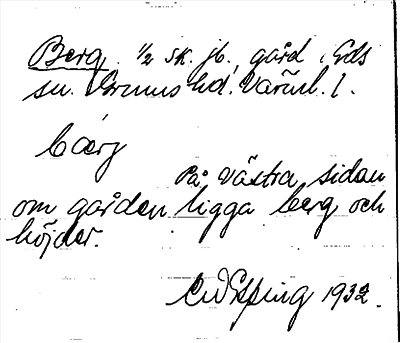 Berg 1/2 sk. jb., gård i Eds
sn. Grums hd. Värml. l.
bærj
På västra sidan
om gården ligga berg och
höjder.
1932.